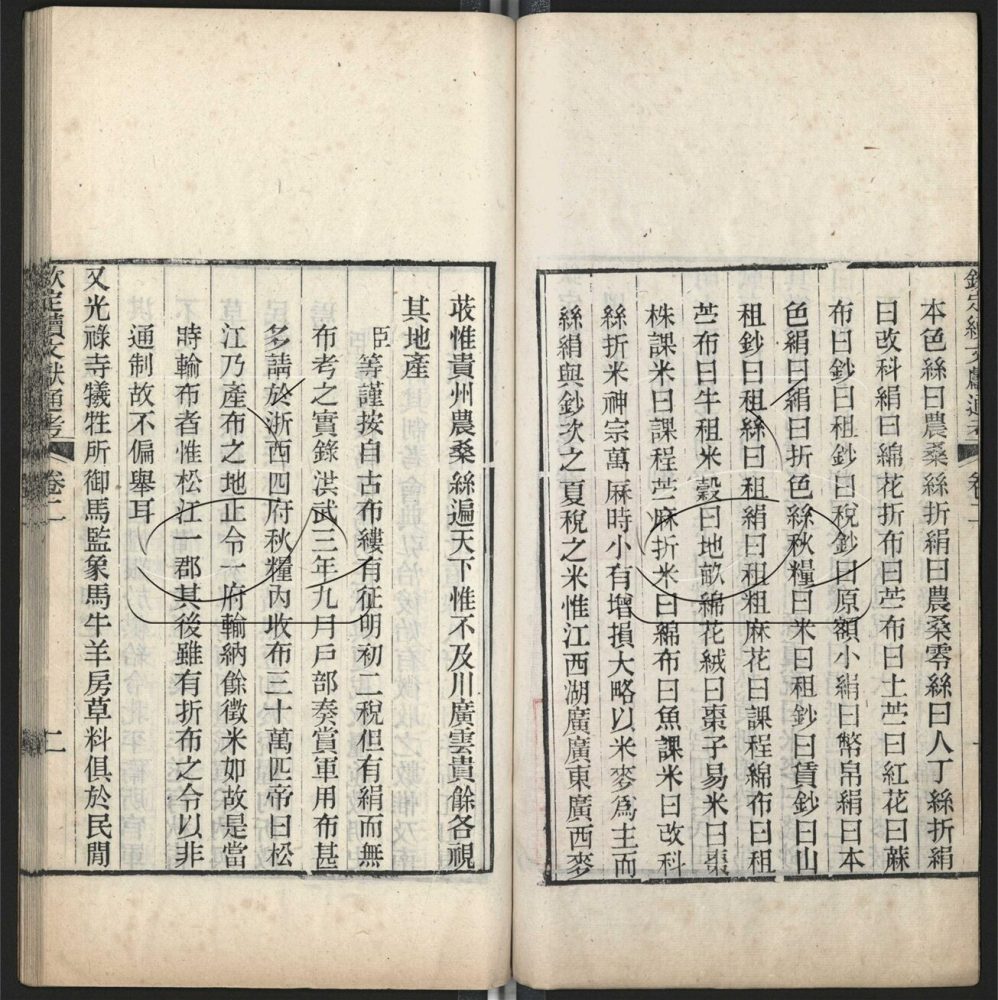 欽定續文獻通考 卷二
本色絲曰農桑絲折絹曰農桑零絲曰人丁絲折絹
曰改科絹曰綿花折布曰苧布曰土苧曰紅花曰蔴
布曰鈔曰租鈔曰稅鈔曰原額小絹曰幣帛絹曰本
色絹曰絹曰折色絲秋糧曰米曰租鈔曰賃鈔曰山
租鈔曰租絲曰租絹曰租粗麻花曰課程綿布曰租
苧布曰牛租米穀曰地畝綿花絨曰棗子易米曰棗
株課米曰課程苧麻折米曰綿布曰魚課米曰改科
絲折米神宗萬厤時小有增損大略以米麥爲主而
絲絹與鈔次之夏稅之米惟江西湖廣廣東廣西麥
荍惟貴州農桑絲遍天下惟不及川廣雲貴餘各視
其地產
臣等謹按自古布縷有征明初二稅但有絹而無
布考之實錄洪武三年九月戶部奏賞軍用布甚
多請於浙西四府秋糧內收布三十萬匹帝曰松
江乃產布之地止令一府輸納餘徵米如故是當
時輸布者惟松江一郡其後雖有折布之令以非
通制故不偏舉耳
又光祿寺犧牲所御馬監象馬牛羊房草料俱於民閒
欽定續文獻通考 卷二 二